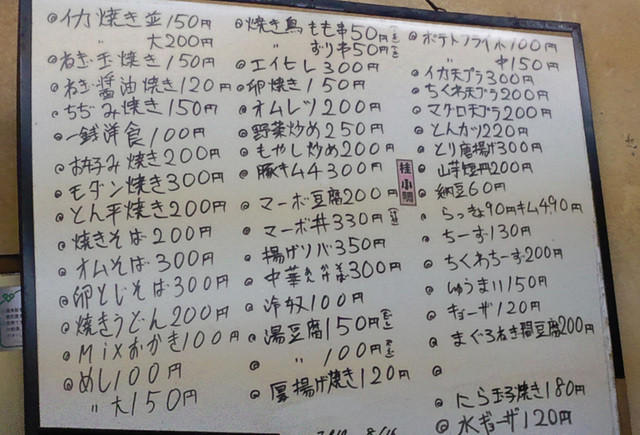 ◎イカ焼き並150円
〃 大200円
◎ねぎ玉焼き150円
◎ねぎ醤油焼き120円
◎ちぢみ焼き150円
◎一銭洋食100円
◎お好み焼き200円
◎モダン焼き300円
◎とん平焼き200円
◎焼きそば200円
◎オムそば300円
◎卵とじそば300円
◎焼きうどん200円
◎Mixおかき100円
◎めし100円
〃大150円
◎焼き鳥もも串50円
〃 ずり串50円
◎エイヒレ300円
◎卵焼き150円
◎オムレツ200円
◎野菜炒め250円
◎もやし炒め200円
◎豚キムチ300円
◎マーボ豆腐200円
◎マーボ丼330円
◎揚げソバ350円
◎中華そば300円
◎冷奴100円
◎湯豆腐150円
◎〃100円
◎厚揚げ焼き120円
◎ポテトフライ小100円
〃 中150円
◎イカ天プラ300円
◎ちくわ天プラ200円
◎マグロ天プラ200円
◎とんカツ220円
◎とり唐揚げ300円
◎山芋短冊200円
◎納豆60円
◎らっきょ90円キムチ90円
◎ちーず130円
◎ちくわちーず200円
◎しゅうまい150円
◎ギョーザ120円
◎まぐろねぎ湯豆腐200円
◎
◎にら玉子焼き180円
◎水ギョーザ120円
桂小鯛